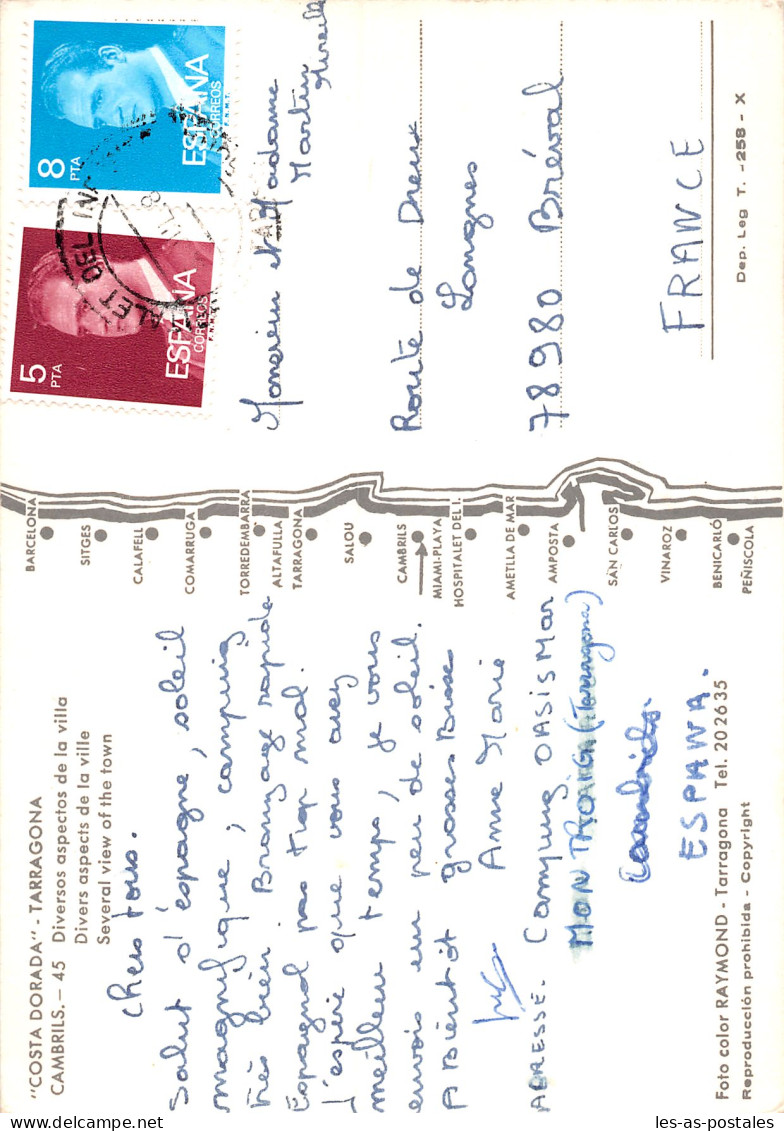 "COSTA DORADA" - TARRAGONA
CAMBRILS. - 45 Diversos aspectos de la villa
Divers aspects de la ville
Several view of the town
Chers tous.
Salut d'espagne, soleil
magnifique, camping
très bien. Bronzage rapide
Espagnol pas trop mal.
J'espère que vous avez
meilleur temps, je vous
envois un peu de soleil.
A Bientôt grosses Bises
Anne Marie
ADRESSE. Camping OASIS Mar
MONTROIG (Tarragona)
Cambrils.
ESPAÑA.
Foto color RAYMOND - Tarragona Tel. 202635
Reproducción prohibida - Copyright
BARCELONA
SITGES
CALAFELL
COMARRUGA
TORREDEMBARRA
ALTAFULLA
TARRAGONA
SALOU
CAMBRILS
MIAMI-PLAYA
HOSPITALET DEL I.
AMETLLA DE MAR
AMPOSTA
SAN CARLOS
VINAROZ
BENICARLÓ
PEÑISCOLA
5 PTA
ESPAÑA
CORREOS
8 PTA
ESPAÑA
CORREOS
ALET DEL INF
Monsieur et Madame
Martin Mireille
Route de Dreux
Longnes
78980 Bréval
FRANCE
Dep. Leg T. -258 - X
les-as-postales